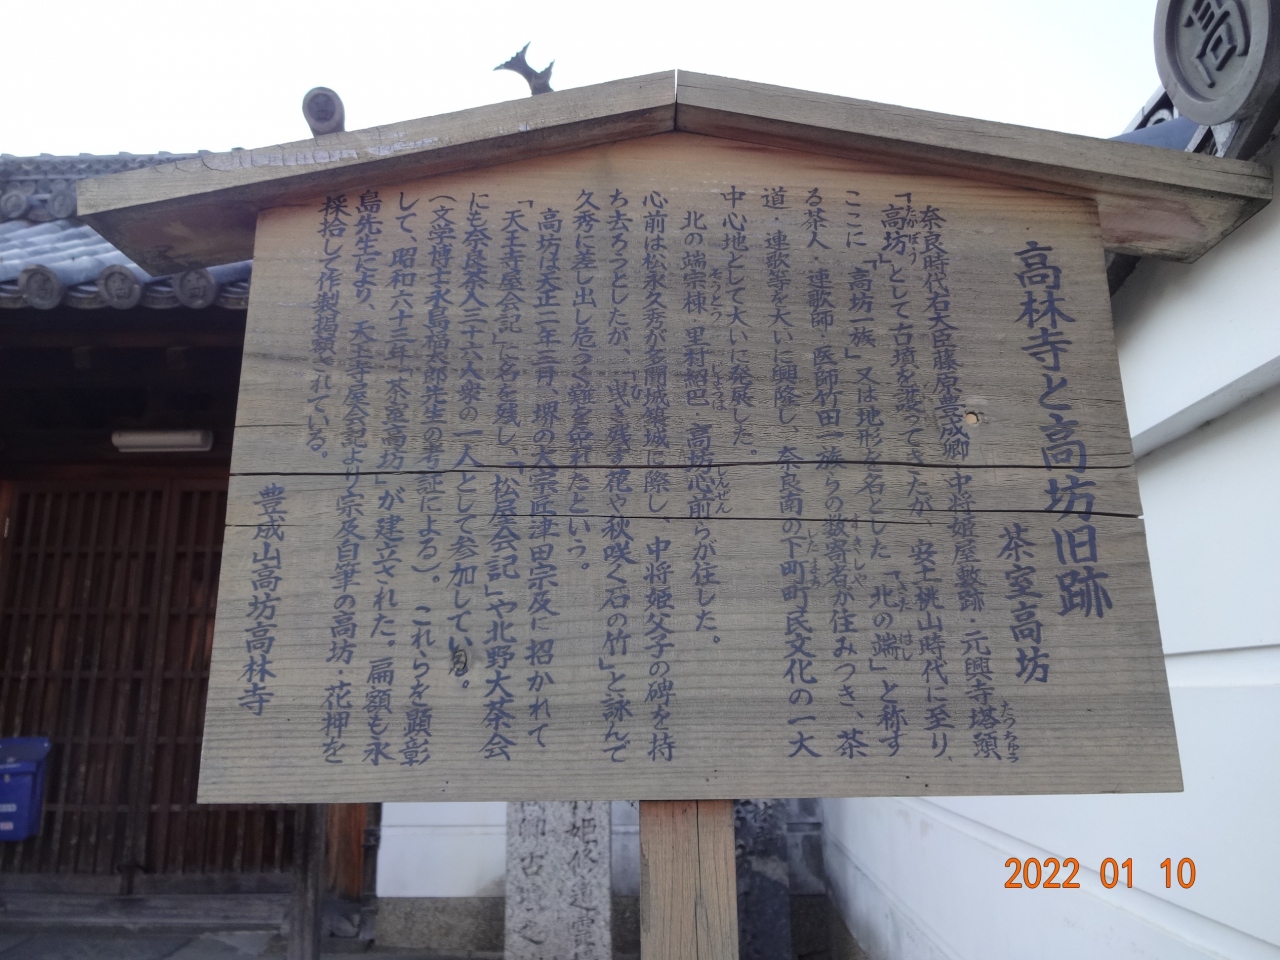 高林寺と高坊旧跡
茶室高坊
奈良時代右大臣藤原豊成卿 中将姫屋敷跡・元興寺塔頭
たっちゅう
「高坊」として古墳を護ってきたが、安土桃山時代に至り、
たかぼう
ここに「高坊一族」又は地形を名とした「北の端」と称す
きたはし
る茶人・連歌師・医師竹田一族らの数寄者が住みつき、茶
すきしゃ
道・連歌等を大いに興隆し、奈良南の下町町民文化の一大
したまち
中心地として大いに発展した。
北の端宗棟・里村紹巴・高坊心前らが住した。
そうとう じょうは しんぜん
心前は松永久秀が多聞城築城に際し、中将姫父子の碑を持
ち去ろうとしたが、「曳き残す花や秋咲く石の竹」と詠んで
久秀に差し出し危うく難を免れたという。
高坊は天正二年三月、堺の大宗匠津田宗及に招かれて
「天王寺屋会記」に名を残し、「松屋会記」や北野大茶会
にも奈良茶人三十六人衆の一人として参加している。
(文学博士永島福太郎先生の考証による)。これらを顕彰
して、昭和六十三年「茶室高坊」が建立された。扁額も永
島先生により、天王寺屋会記より宗及自筆の高坊・花押を
採拾して作製掲揚されている。
豊成山高坊高林寺
姫修道霊
古墳之
2022 01 10